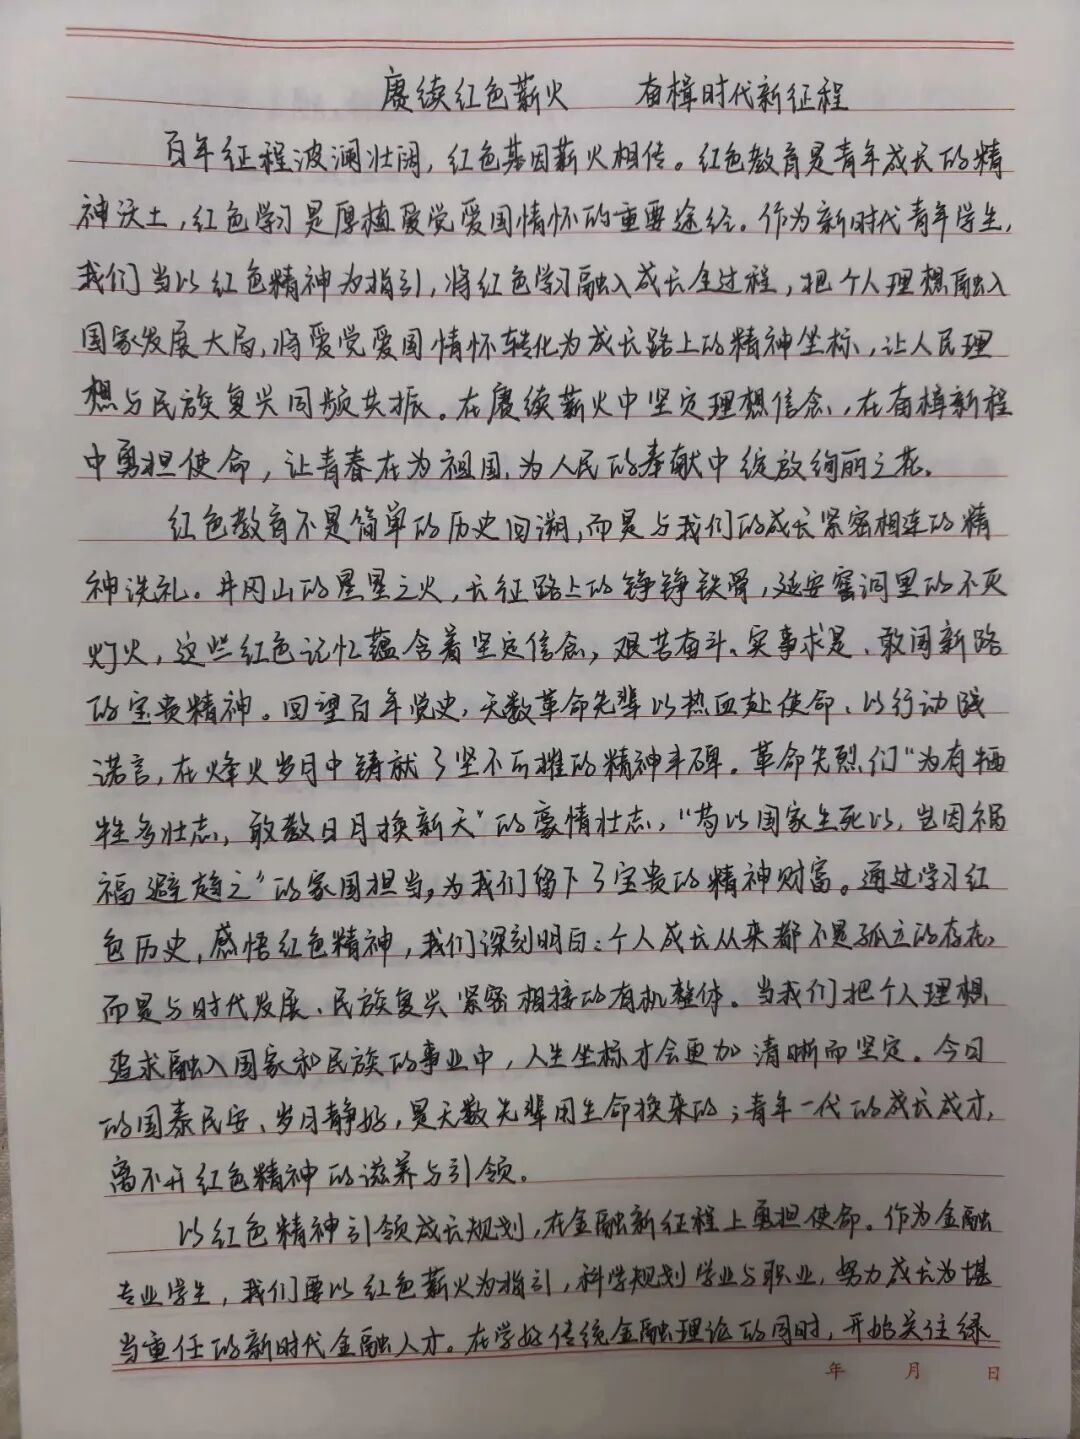 赓续红色薪火 奋楫时代新征程
百年征程波澜壮阔，红色基因薪火相传。红色教育是青年成长的精
神沃土，红色学习是厚植爱党爱国情怀的重要途经。作为新时代青年学生，
我们当以红色精神为指引，将红色学习融入成长全过程，把个人理想融入
国家发展大局，将爱党爱国情怀转化为成长路上的精神坐标，让人民理
想与民族复兴同频共振。在赓续薪火中坚定理想信念，在奋楫新程
中勇担使命，让青春在为祖国、为人民的奉献中绽放绚丽之花。
红色教育不是简单的历史回溯，而是与我们的成长紧密相连的精
神洗礼。井冈山的星星之火，长征路上的铮铮铁骨，延安窑洞里的不灭
灯火，这些红色记忆蕴含着坚定信念，艰苦奋斗、实事求是、敢闯新路
的宝贵精神。回望百年党史，无数革命先辈以热血赴使命、以行动践
诺言，在烽火岁月中铸就了坚不可摧的精神丰碑。革命先烈们“为有牺
牲多壮志，敢教日月换新天”的豪情壮志，“苟以国家生死以，岂因祸
福避趋之”的家国担当，为我们留下了宝贵的精神财富。通过学习红
色历史，感悟红色精神，我们深刻明白：个人成长从来都不是孤立的存在，
而是与时代发展、民族复兴紧密相接的有机整体。当我们把个人理想
追求融入国家和民族的事业中，人生坐标才会更加清晰而坚定。今日
的国泰民安、岁月静好，是无数先辈用生命换来的；青年一代的成长成才，
离不开红色精神的滋养与引领。
以红色精神引领成长规划，在金融新征程上勇担使命。作为金融
专业学生，我们要以红色薪火为指引，科学规划学业与职业，努力成长为堪
当重任的新时代金融人才。在学好传统金融理论的同时，开始关注绿
年 月 日